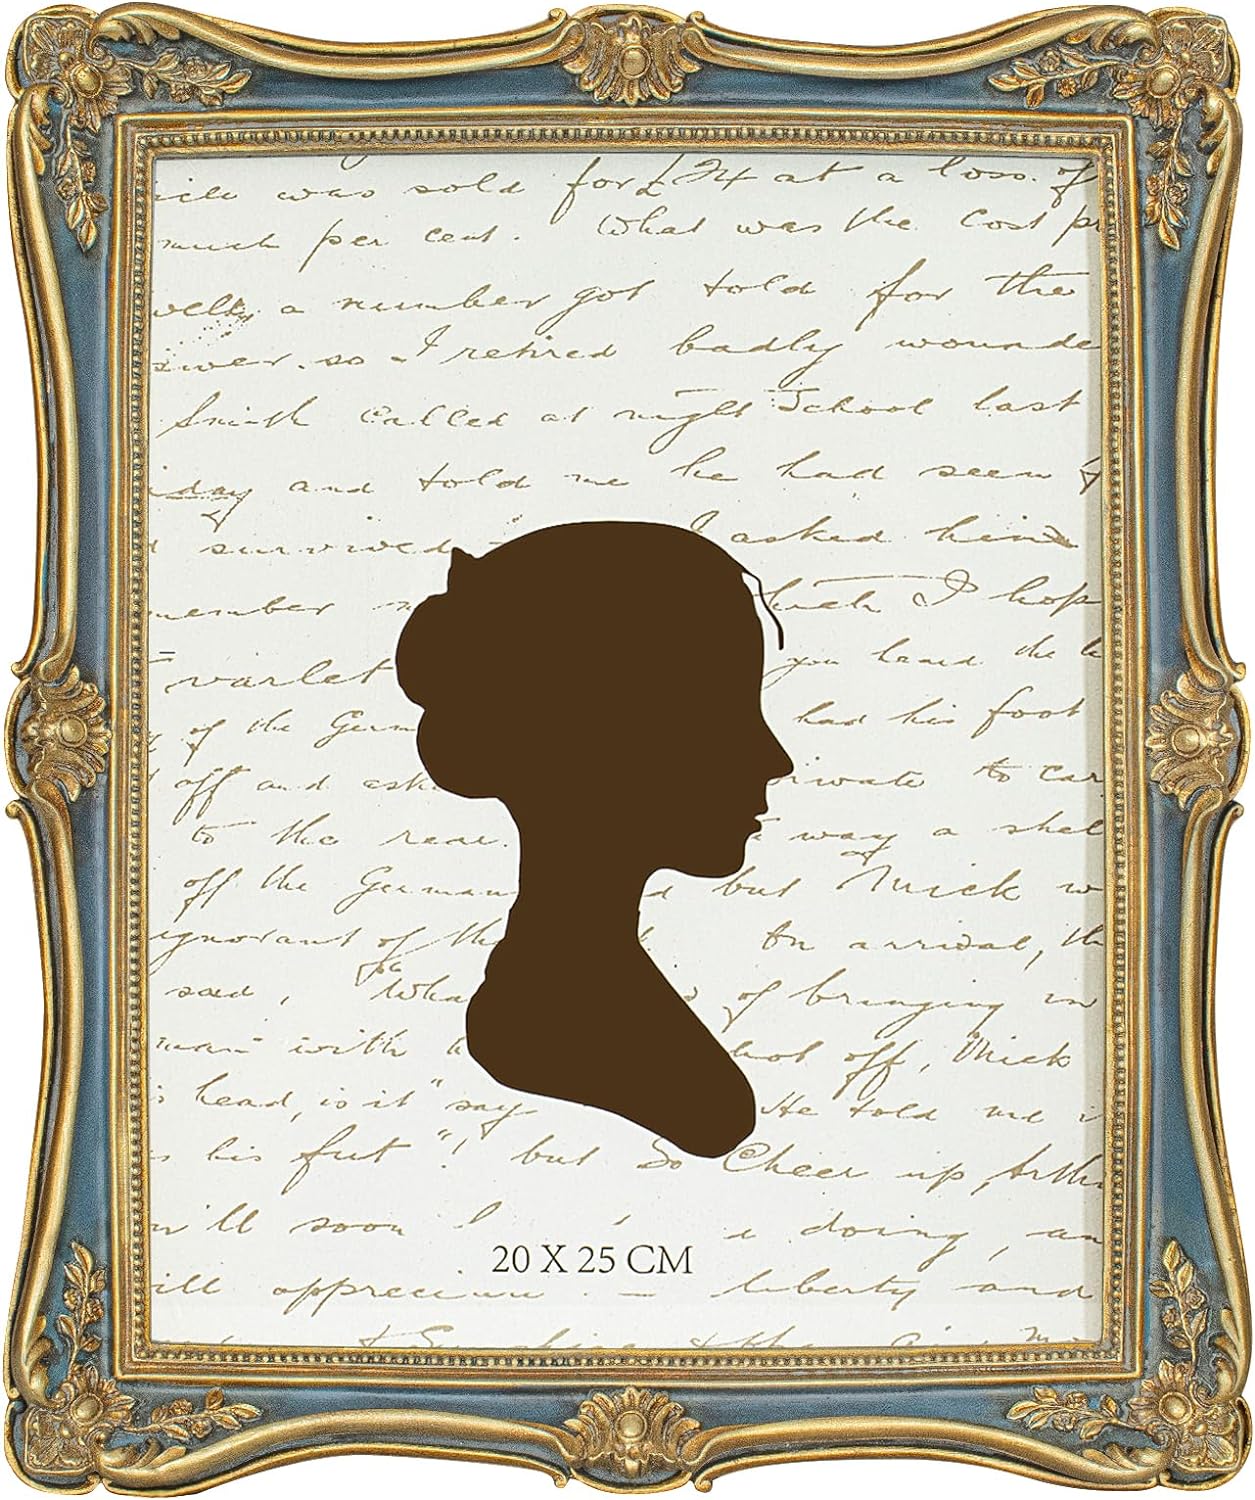 was sold for £24 at a loss of
much per cent. What was the cost pr
well, a number got told for the
so I retired badly wounde
Smith called at night School last
day and told me he had seen
survived I asked him
member which I hop
varlet you heard the
of the Germ had his foot
off and ask rivate to car
to the rear. way a shel
off the German but Mick w
ignorant of th On arrival, th
said, "Wha of bringing in
man" with hot off, Mick
head, is it" says He told me i
his fut"! but So Cheer up, Arthu
'll soon doing, an
20 X 25 CM
ill apprecia liberty and